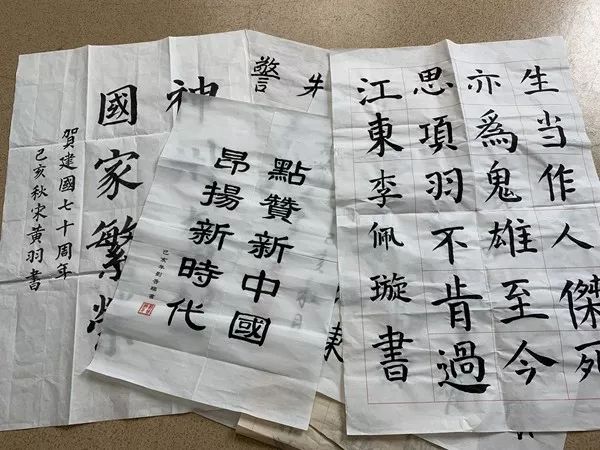 生当作人傑死
亦爲鬼雄至今
思項羽不肯過
江東李佩璇書
點贊新中國
昂揚新時代
己亥年劉書
朱
警
神
國家繁榮
賀建國七十周年
己亥秋宋黄羽書